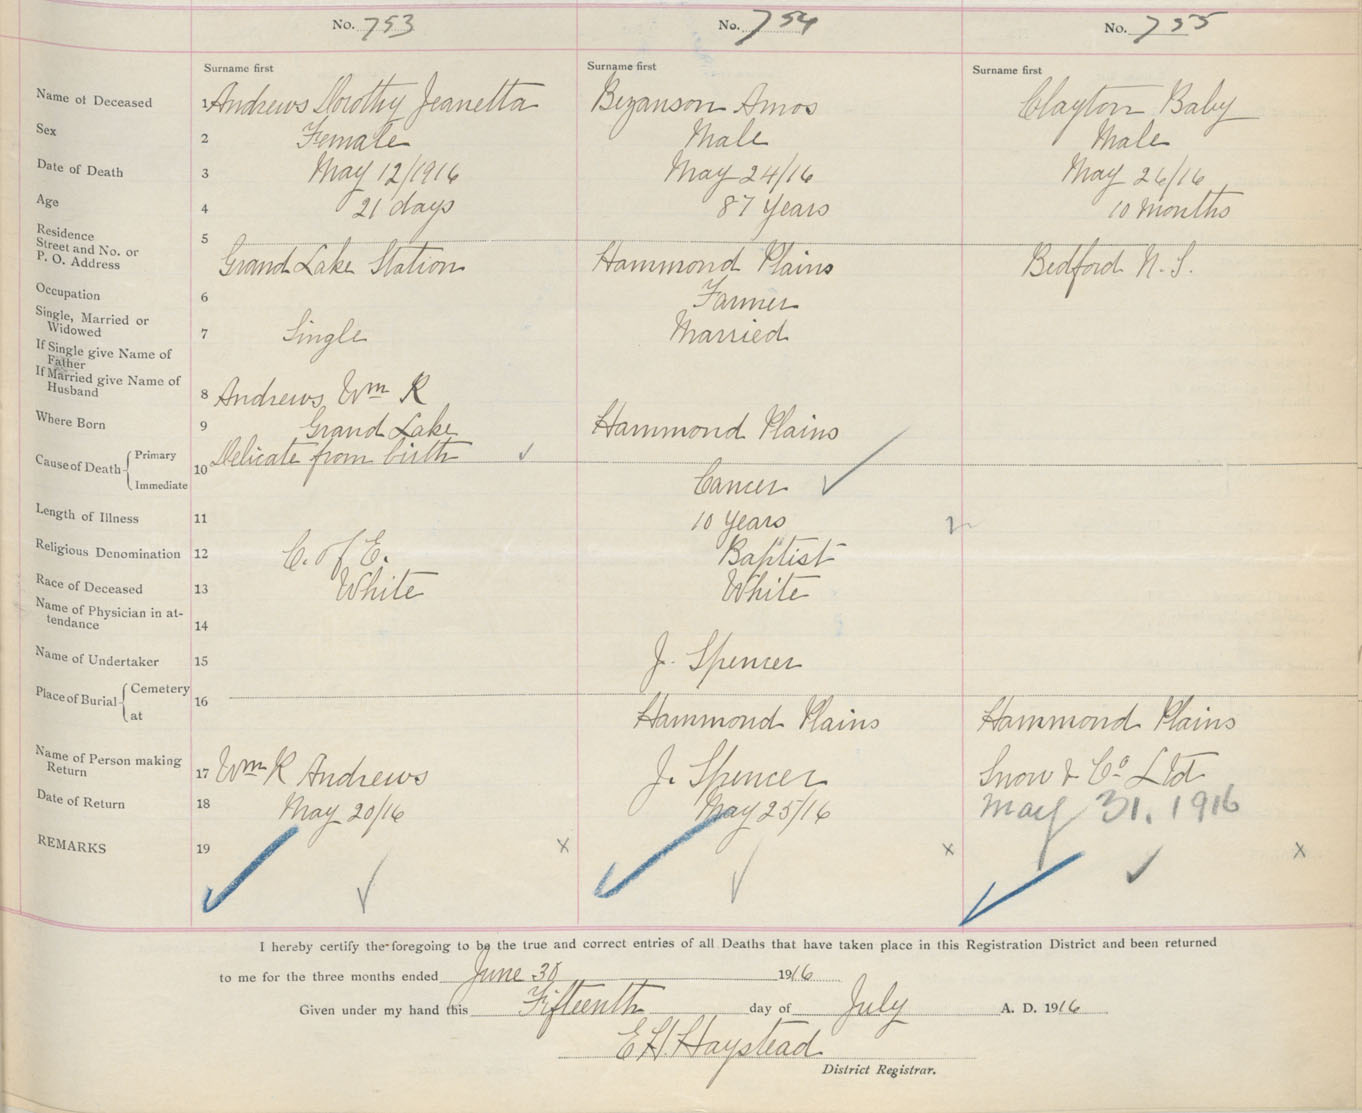 No. 753 No. 754 No. 755
Surname first Surname first Surname first
Name of Deceased 1 Andrews Dorothy Jeanetta Bezanson Amos Clayton Baby
Sex 2 Female Male Male
Date of Death 3 May 12/1916 May 24/16 May 26/16
Age 4 21 days 87 Years 10 months
Residence 5
Street and No. or
P. O. Address Grand Lake Station Hammond Plains Bedford N. S.
Occupation 6 Farmer
Single, Married or
Widowed 7 Single Married
If Single give Name of
Father
If Married give Name of
Husband 8 Andrews, Wm R
Where Born 9 Grand Lake Hammond Plains
Cause of Death { Primary 10 Delicate from birth ✓
Immediate Cancer ✓
Length of Illness 11 10 Years
Religious Denomination 12 C. of E. Baptist
Race of Deceased 13 White White
Name of Physician in at-
tendance 14
Name of Undertaker 15 J. Spencer
Place of Burial { Cemetery 16
at Hammond Plains Hammond Plains
Name of Person making
Return 17 Wm R Andrews J. Spencer Snow & Co Ltd
Date of Return 18 May 20/16 May 25/16 May 31. 1916
REMARKS 19 x x x
I hereby certify the foregoing to be the true and correct entries of all Deaths that have taken place in this Registration District and been returned
to me for the three months ended June 30 1916
Given under my hand this Fifteenth day of July A. D. 1916
E H. Haystead
District Registrar.